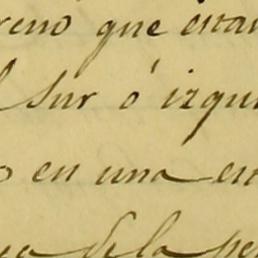 reno que estan
l sur ó izqui
o en una en
ua de la pe